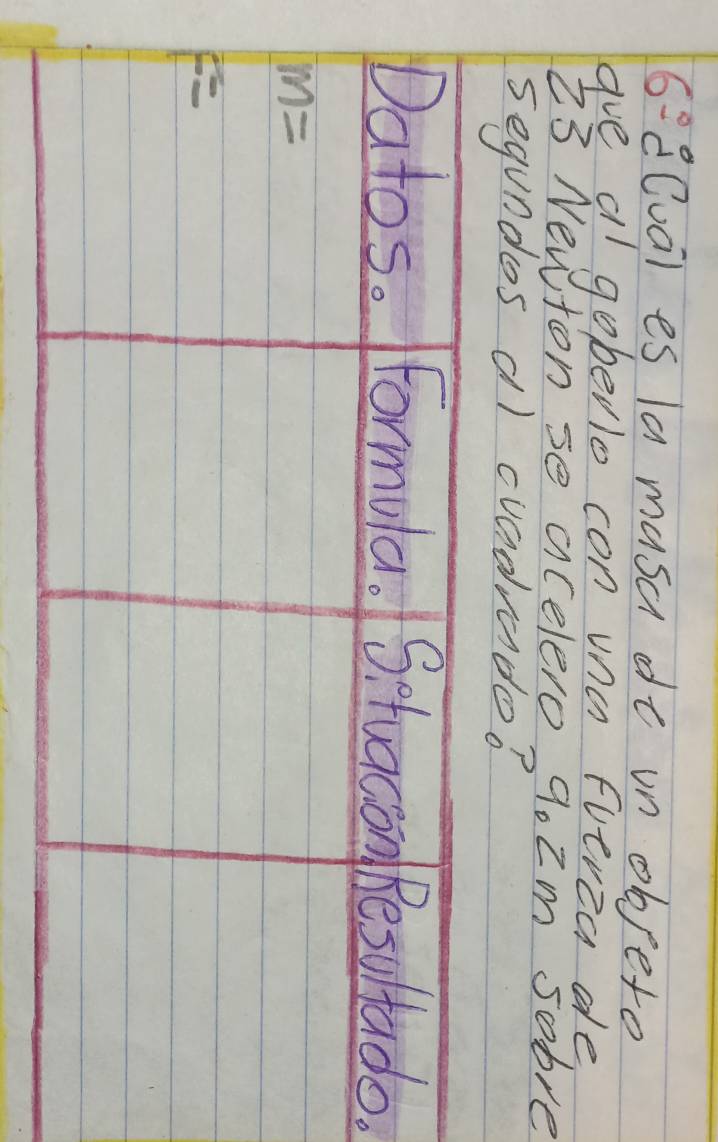 6º ¿Cuál es la masa de un objeto
que al geberlo con una fuerza de
23 Newton se acelero 9.2m sobre
segundos al cuadrado?
Datos. Formula. Situación. Resultado.
m=
F=